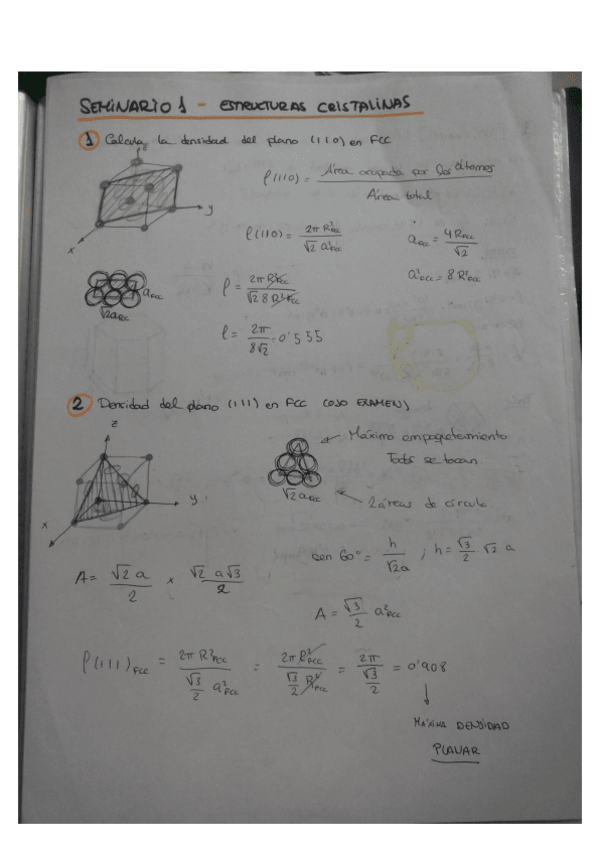 SEMINARIO 1 - ESTRUCTURAS CRISTALINAS
1 Calcula la densidad del plano (110) en FCC
z
y
x
ρ(110) = Área ocupada por los átomos / Área total
ρ(110) = 2π R²FCC / √2 a²FCC
aFCC = 4 RFCC / √2
a²FCC = 8 R²FCC
aFCC
√2 aFCC
ρ = 2π R²FCC / √2 8 R²FCC
ρ = 2π / 8√2 = 0'555
2 Densidad del plano (111) en FCC (OJO EXAMEN)
z
y
x
Máximo empaquetamiento
Todos se tocan
√2 aFCC
2 áreas de círculo.
sen 60° = h / √2a ; h = √3/2 √2 a
A = √2 a / 2 x √2 a√3 / 2
A = √3/2 a²FCC
ρ(111)FCC = 2π R²FCC / √3/2 a²FCC = 2π R²FCC / √3/2 R²FCC = 2π / √3/2 = 0'908
MÁXIMA DENSIDAD
PLANAR